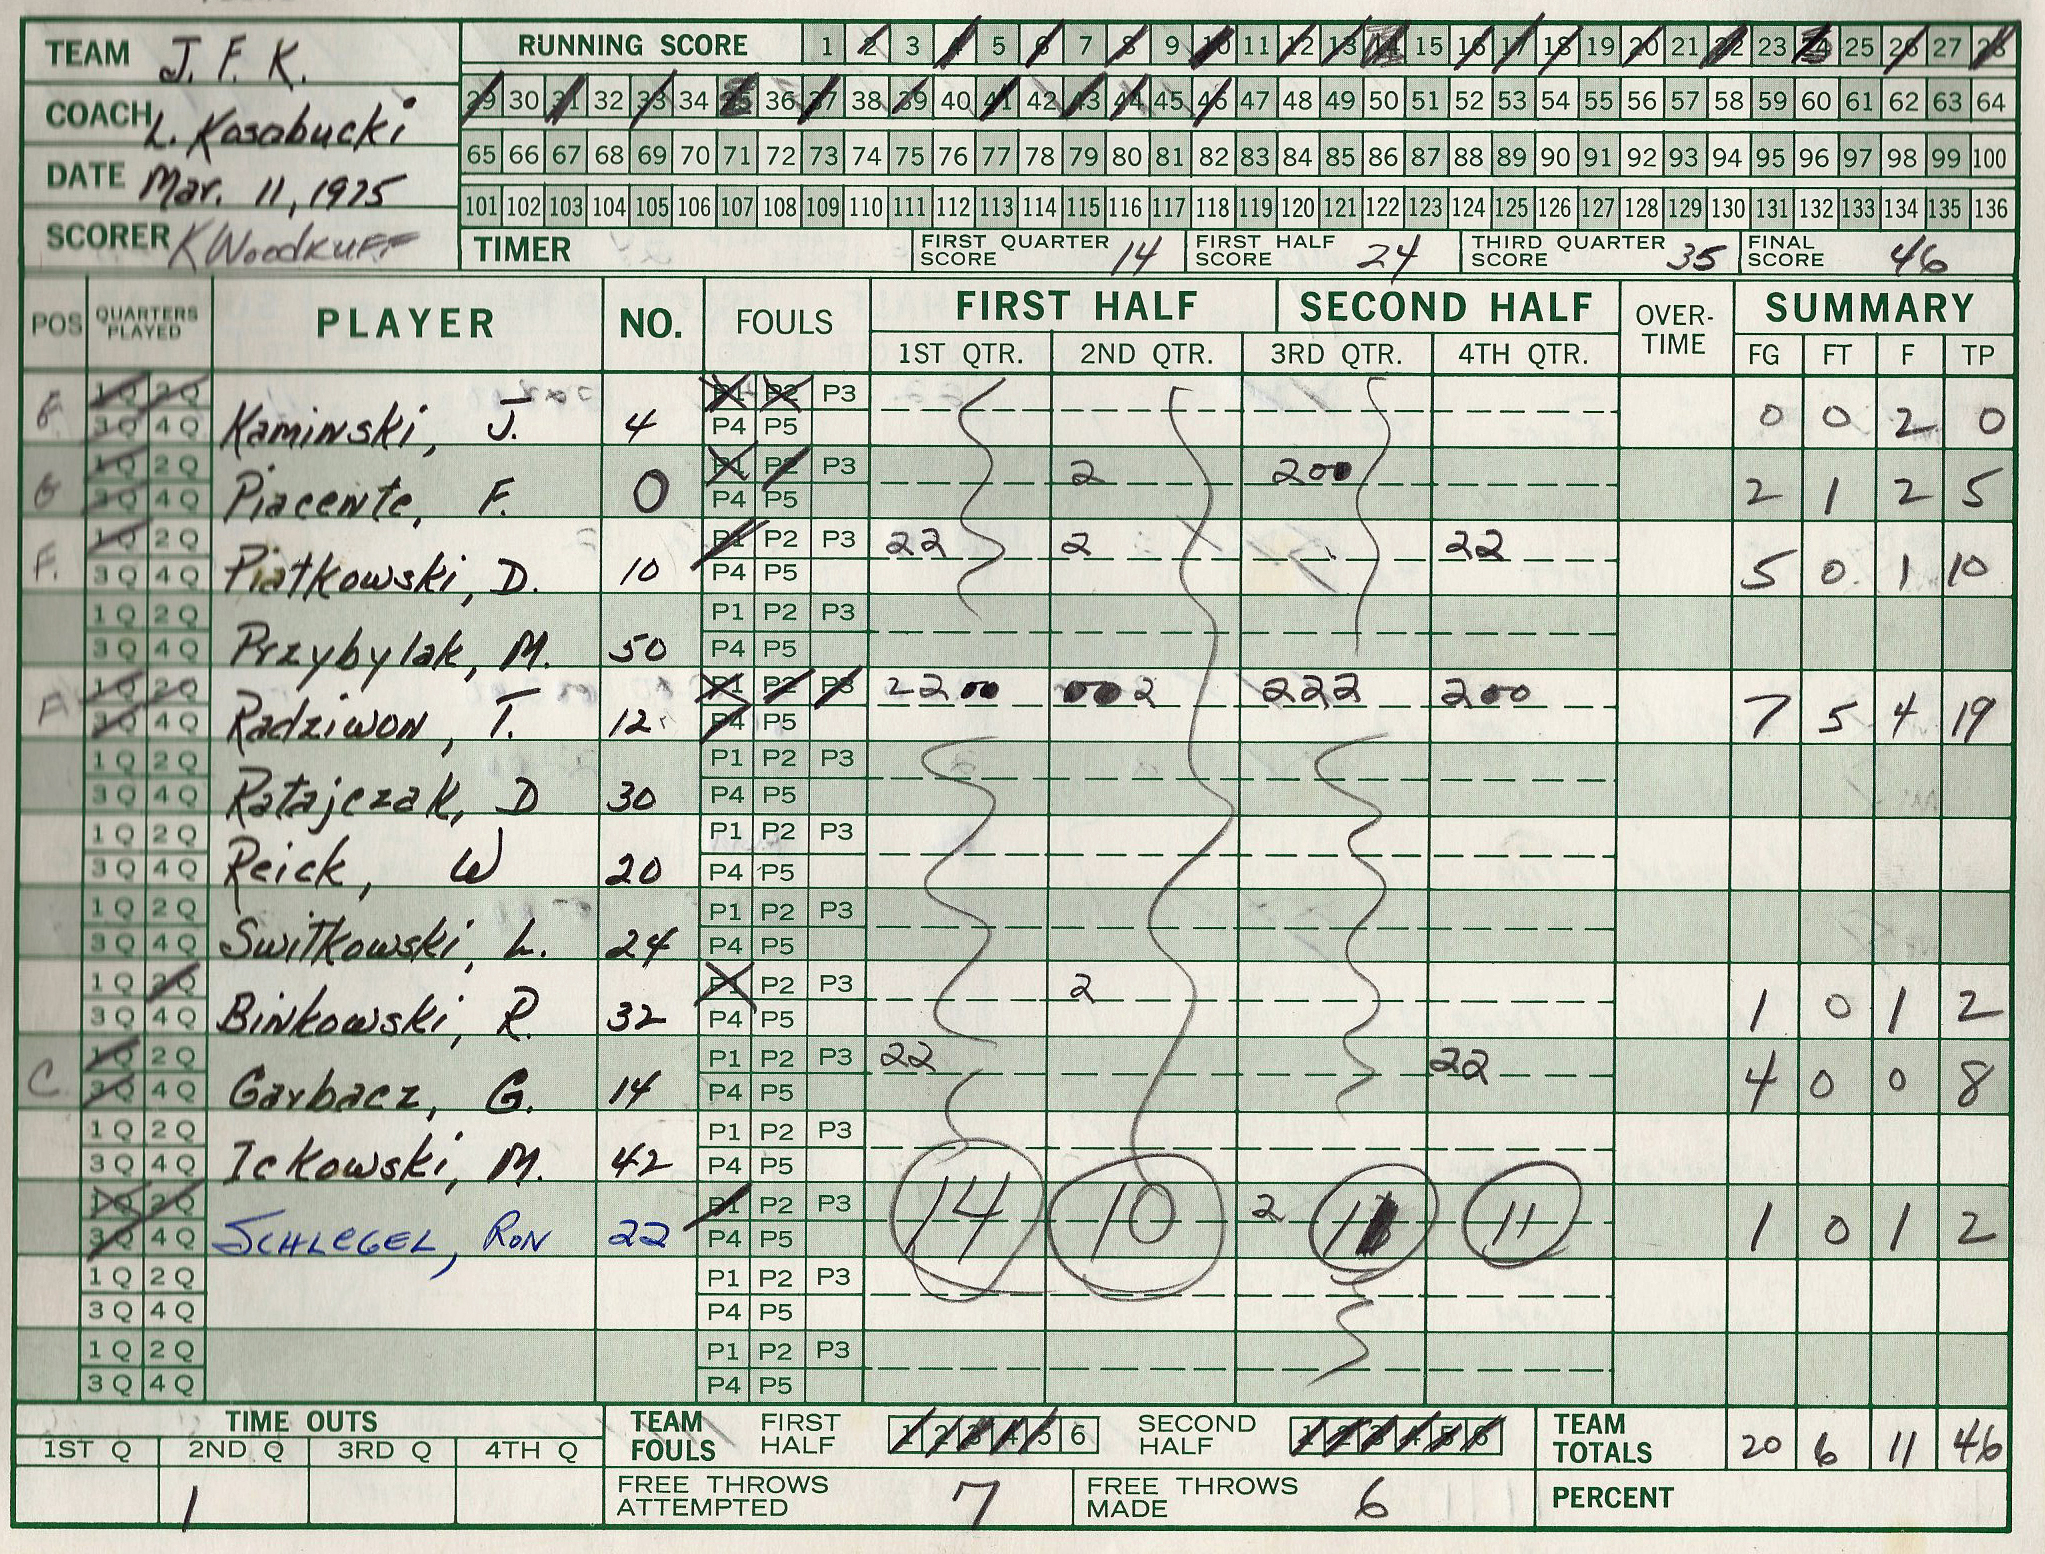 TEAM J. F. K.
COACH L. Kosobucki
DATE Mar. 11, 1975
SCORER K Woodruff
RUNNING SCORE 1 2 3 4 5 6 7 8 9 10 11 12 13 14 15 16 17 18 19 20 21 22 23 24 25 26 27 28
29 30 31 32 33 34 35 36 37 38 39 40 41 42 43 44 45 46 47 48 49 50 51 52 53 54 55 56 57 58 59 60 61 62 63 64
65 66 67 68 69 70 71 72 73 74 75 76 77 78 79 80 81 82 83 84 85 86 87 88 89 90 91 92 93 94 95 96 97 98 99 100
101 102 103 104 105 106 107 108 109 110 111 112 113 114 115 116 117 118 119 120 121 122 123 124 125 126 127 128 129 130 131 132 133 134 135 136
TIMER FIRST QUARTER SCORE 14 FIRST HALF SCORE 24 THIRD QUARTER SCORE 35 FINAL SCORE 46
POS QUARTERS PLAYED PLAYER NO. FOULS FIRST HALF SECOND HALF OVER-TIME SUMMARY
1ST QTR. 2ND QTR. 3RD QTR. 4TH QTR. FG FT F TP
1Q 2Q P1 P2 P3
3Q 4Q Kaminski, J. 4 P4 P5 0 0 2 0
G 1Q 2Q P1 P2 P3 2 200
3Q 4Q Piacente, F. 0 P4 P5 2 1 2 5
F. 1Q 2Q P1 P2 P3 22 2 22
3Q 4Q Piatkowski, D. 10 P4 P5 5 0 1 10
1Q 2Q P1 P2 P3
3Q 4Q Przybylak, M. 50 P4 P5
1Q 2Q P1 P2 P3 2200 002 222 200
3Q 4Q Radziwon, T. 12 P4 P5 7 5 4 19
1Q 2Q P1 P2 P3
3Q 4Q Ratajczak, D 30 P4 P5
1Q 2Q P1 P2 P3
3Q 4Q Reick, W 20 P4 P5
1Q 2Q P1 P2 P3
3Q 4Q Switkowski, L. 24 P4 P5
1Q 2Q P1 P2 P3 2
3Q 4Q Binkowski, R. 32 P4 P5 1 0 1 2
C. 1Q 2Q P1 P2 P3 22 22
3Q 4Q Garbacz, G. 14 P4 P5 4 0 0 8
1Q 2Q P1 P2 P3
3Q 4Q Ickowski, M. 42 P4 P5
1Q 2Q P1 P2 P3 14 10 2 11 11
3Q 4Q SCHLEGEL, RON 22 P4 P5 1 0 1 2
1Q 2Q P1 P2 P3
3Q 4Q P4 P5
1Q 2Q P1 P2 P3
3Q 4Q P4 P5
TIME OUTS TEAM FOULS FIRST HALF 1 2 3 4 5 6 SECOND HALF 1 2 3 4 5 6 TEAM TOTALS 20 6 11 46
1ST Q 2ND Q 3RD Q 4TH Q
1 FREE THROWS ATTEMPTED 7 FREE THROWS MADE 6 PERCENT